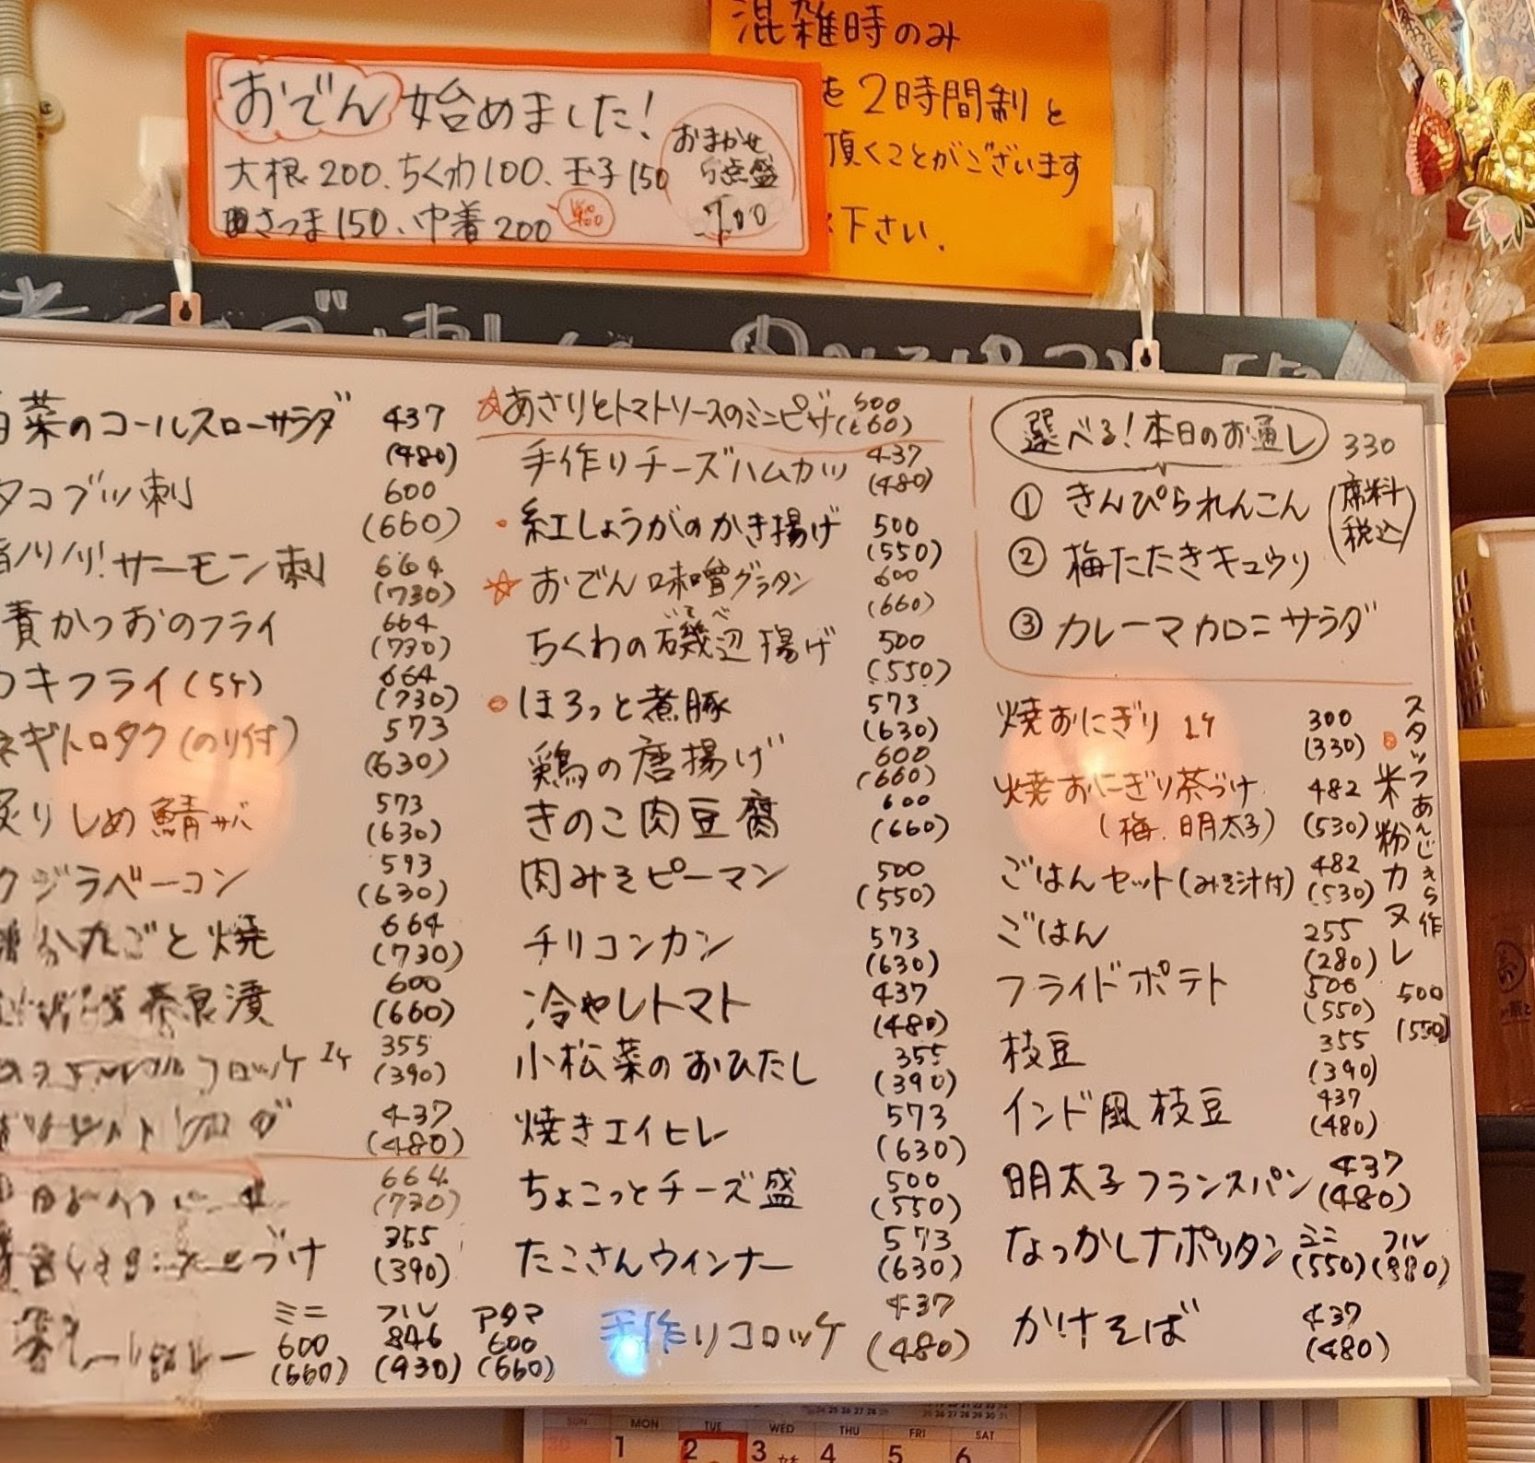 混雑時のみ
を2時間制と
頂くことがございます
下さい.
おでん始めました!
大根200、ちくわ100、玉子150
さつま150、巾着200
おまかせ
5点盛
700
菜のコールスローサラダ 437
(480)
タコブツ刺 600
(660)
サーモン刺 664
(730)
かつおのフライ 664
(730)
キフライ(5ケ) 664
(730)
ネギトロタク(のり付) 573
(630)
炙りしめ鯖サバ 573
(630)
クジラベーコン 573
(630)
丸ごと焼 664
(730)
奈良漬 600
(660)
コロッケ 1ケ 355
(390)
437
(480)
664
(730)
づけ 355
(390)
ミニ フル アタマ
600 846 600
(660) (930) (660)
☆あさりとトマトソースのミニピザ 600
(660)
手作りチーズハムカツ 437
(480)
・紅しょうがのかき揚げ 500
(550)
☆おでん味噌グラタン 600
(660)
ちくわの磯辺揚げ 500
いそべ
(550)
ほろっと煮豚 573
(630)
鶏の唐揚げ 600
(660)
きのこ肉豆腐 600
(660)
肉みそピーマン 500
(550)
チリコンカン 573
(630)
冷やしトマト 437
(480)
小松菜のおひたし 355
(390)
焼きエイヒレ 573
(630)
ちょこっとチーズ盛 500
(550)
たこさんウインナー 573
(630)
手作りコロッケ 437
(480)
選べる!本日のお通し 330
(席料
税込)
① きんぴられんこん
② 梅たたきキュウリ
③ カレーマカロニサラダ
焼おにぎり 1ケ 300
(330)
焼おにぎり茶づけ 482
(梅、明太子) (530)
ごはんセット(みそ汁付) 482
(530)
ごはん 255
(280)
フライドポテト 500
(550)
枝豆 355
(390)
インド風枝豆 437
(480)
明太子フランスパン 437
(480)
なつかしナポリタン ミニ フル
(550) (980)
かけそば 437
(480)
スタッフあんじぇら作
米粉カヌレ
500
(550)
SUN MON TUE WED THU FRI SAT
1 2 3 4 5 6